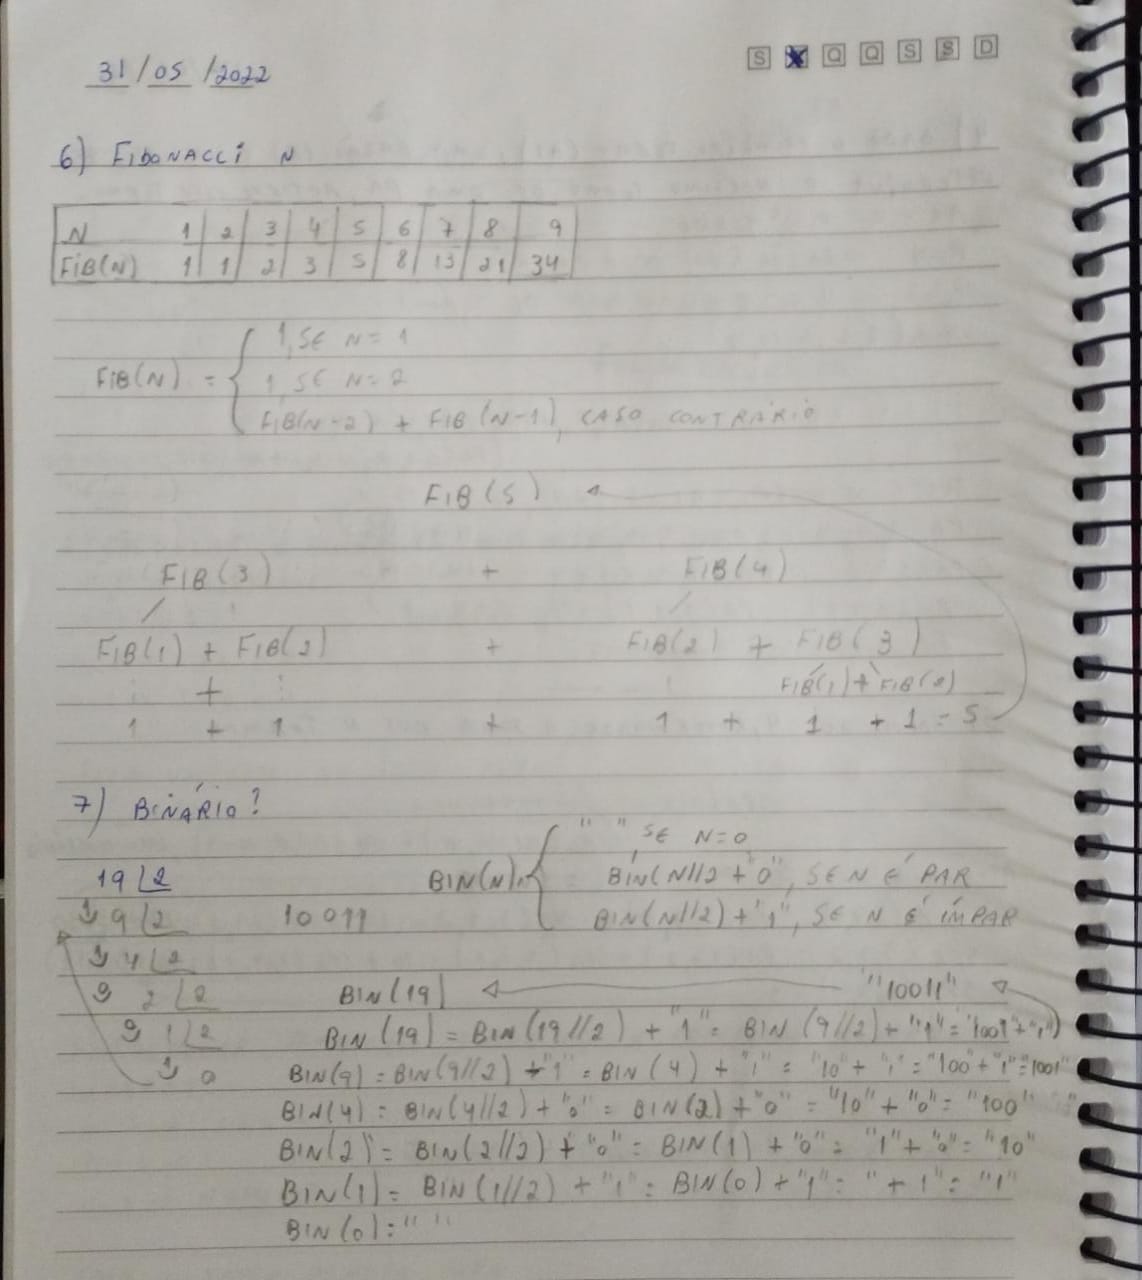 31/05/2022 S Q Q S S D
6) FIBONACCI N
N 1 2 3 4 5 6 7 8 9
FIB(N) 1 1 2 3 5 8 13 21 34
1, SE N=1
FIB(N) = { 1, SE N=2
FIB(N-2) + FIB(N-1), CASO CONTRÁRIO
FIB(5)
FIB(3) + FIB(4)
FIB(1) + FIB(2) + FIB(2) + FIB(3)
+ FIB(1)+FIB(2)
1 + 1 + 1 + 1 + 1 = 5
7) BINÁRIO?
" ", SE N=0
19 2 BIN(N) { BIN(N//2 + "0", SE N É PAR
1 9 2 10011 BIN(N//2) + "1", SE N É ÍMPAR
1 4 2
0 2 2 BIN(19) "10011"
0 1 2 BIN(19) = BIN(19//2) + "1" = BIN(9//2) + "1" = "1001"+"1"
1 0 BIN(9) = BIN(9//2) + "1" = BIN(4) + "1" = "10" + "1" = "100" + "1" = "1001"
BIN(4) = BIN(4//2) + "0" = BIN(2) + "0" = "10" + "0" = "100"
BIN(2) = BIN(2//2) + "0" = BIN(1) + "0" = "1" + "0" = "10"
BIN(1) = BIN(1//2) + "1" = BIN(0) + "1" = " + 1" = "1"
BIN(0) = " "